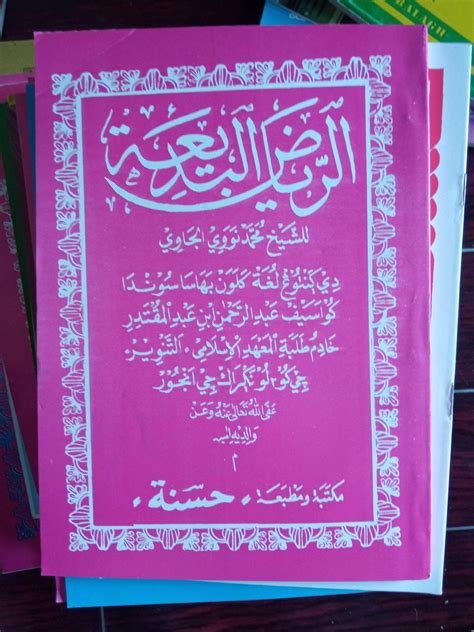 الرياض البديعة
للشيخ محمد نووي الجاوي
دي كنتوغ لغة كلون بهاسا سوندا
كو اسيف عبد الرحمن ابن عبد المقتدر
خادم طلبة المعهد الإسلامي، التنوير
عفى الله تعالى عنه وعن
والديه
م
مكتبة ومطبعة، حسنة،
BALAGH